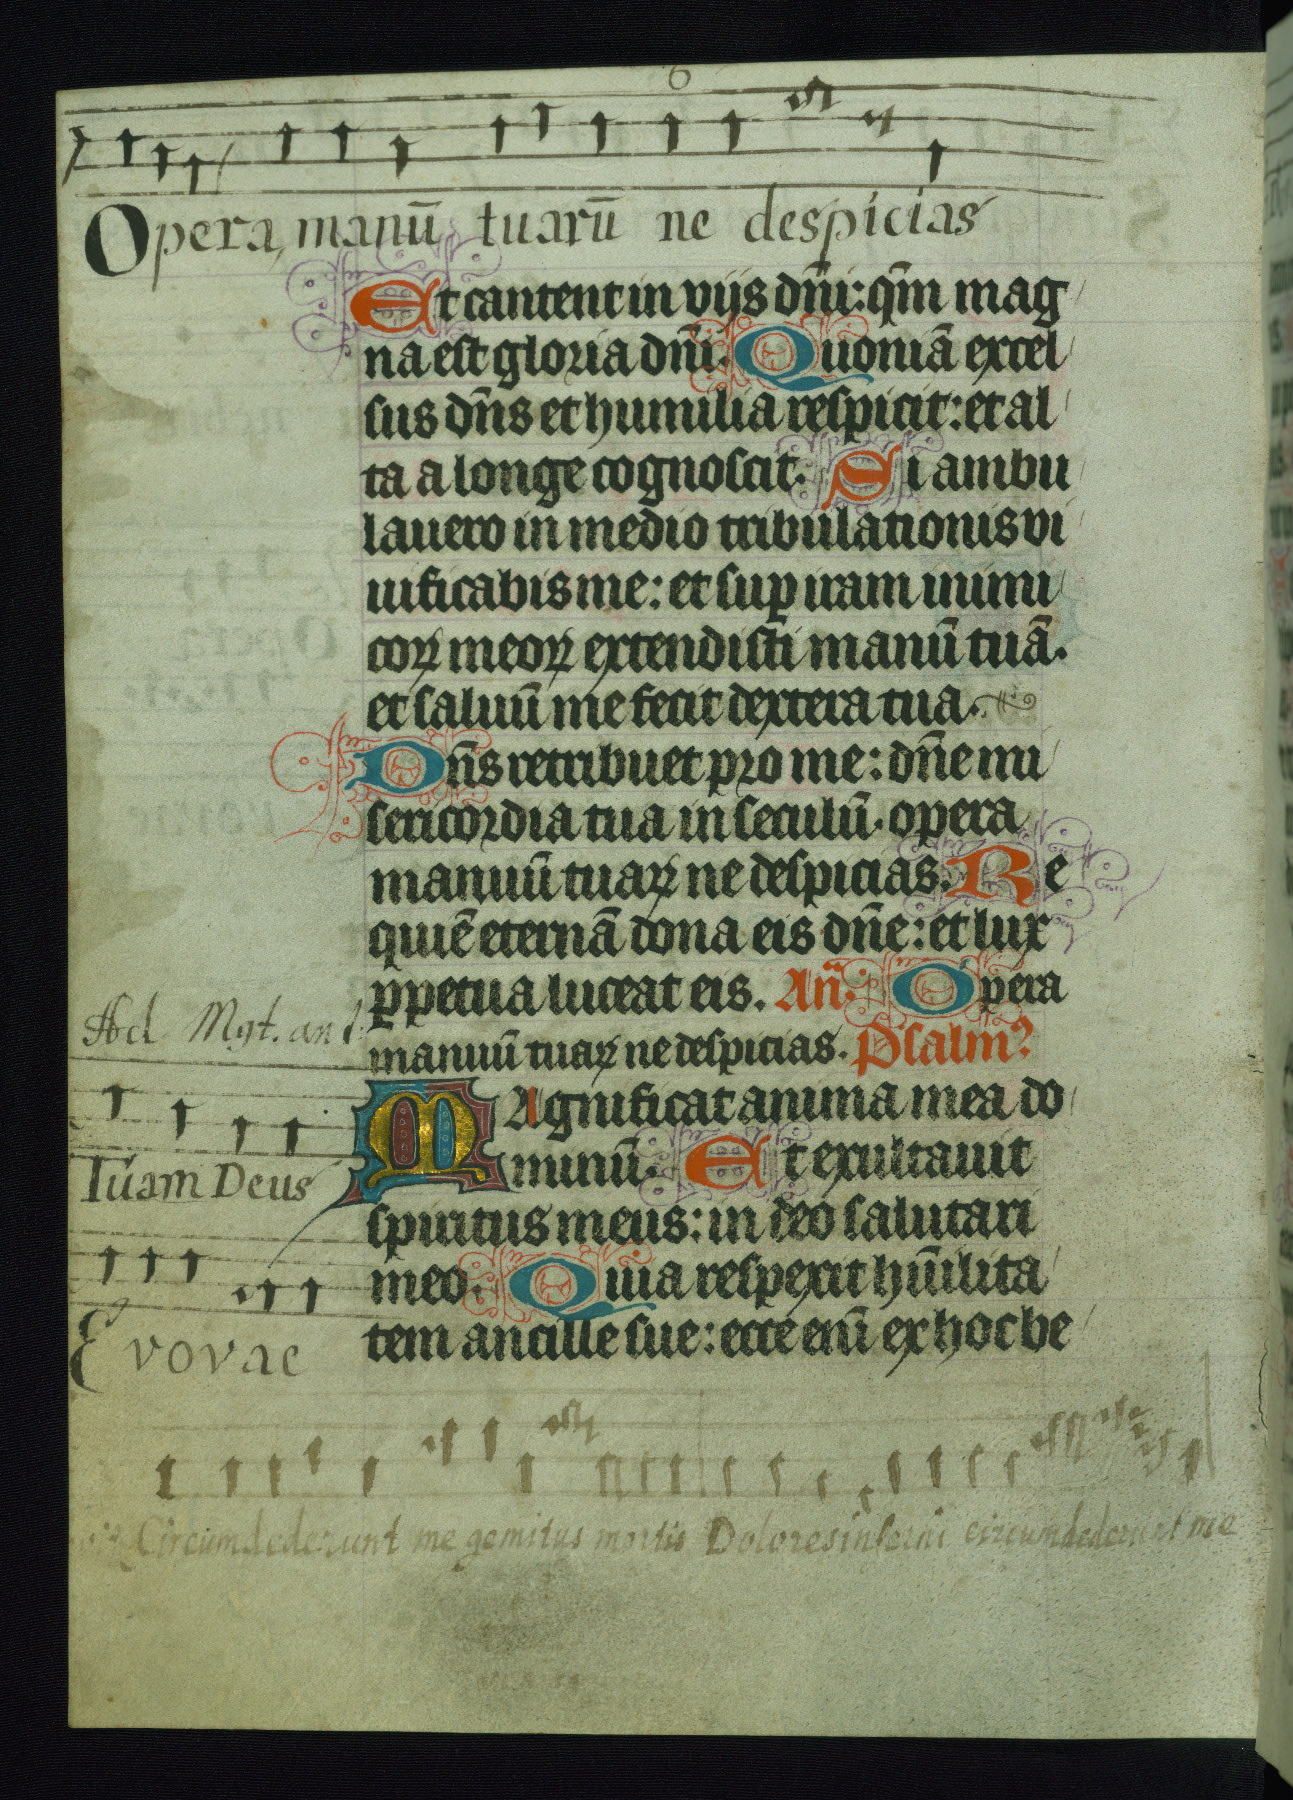 6
Opera manū tuarū ne despicias
Et cantent in viis dn̄i: qm̄ mag
na est gloria dn̄i. Quoniā excel
sus dn̄s et humilia respicit: et al
ta a longe cognoscit. Si ambu
lauero in medio tribulationis vi
uificabis me: et suꝑ iram inimi
coꝝ meoꝝ extendisti manū tuā.
et saluū me fecit dextera tua.
Dn̄s retribuet pro me: dn̄e mi
sericordia tua in seculū. opera
manuū tuaꝝ ne despicias. Re
quiē eternā dona eis dn̄e: et lux
ꝑpetua luceat eis. An̄. Opera
manuū tuaꝝ ne despicias. Psalmꝰ
Magnificat anima mea do
minū. Et exultauit
spiritus meus: in deo salutari
meo. Quia respexit hūilita
tem ancille sue: ecce enī ex hoc be
Ad Mgt. ant
Tuam Deus
Evovae
Circumdederunt me gemitus mortis Dolores inferni circumdederunt me